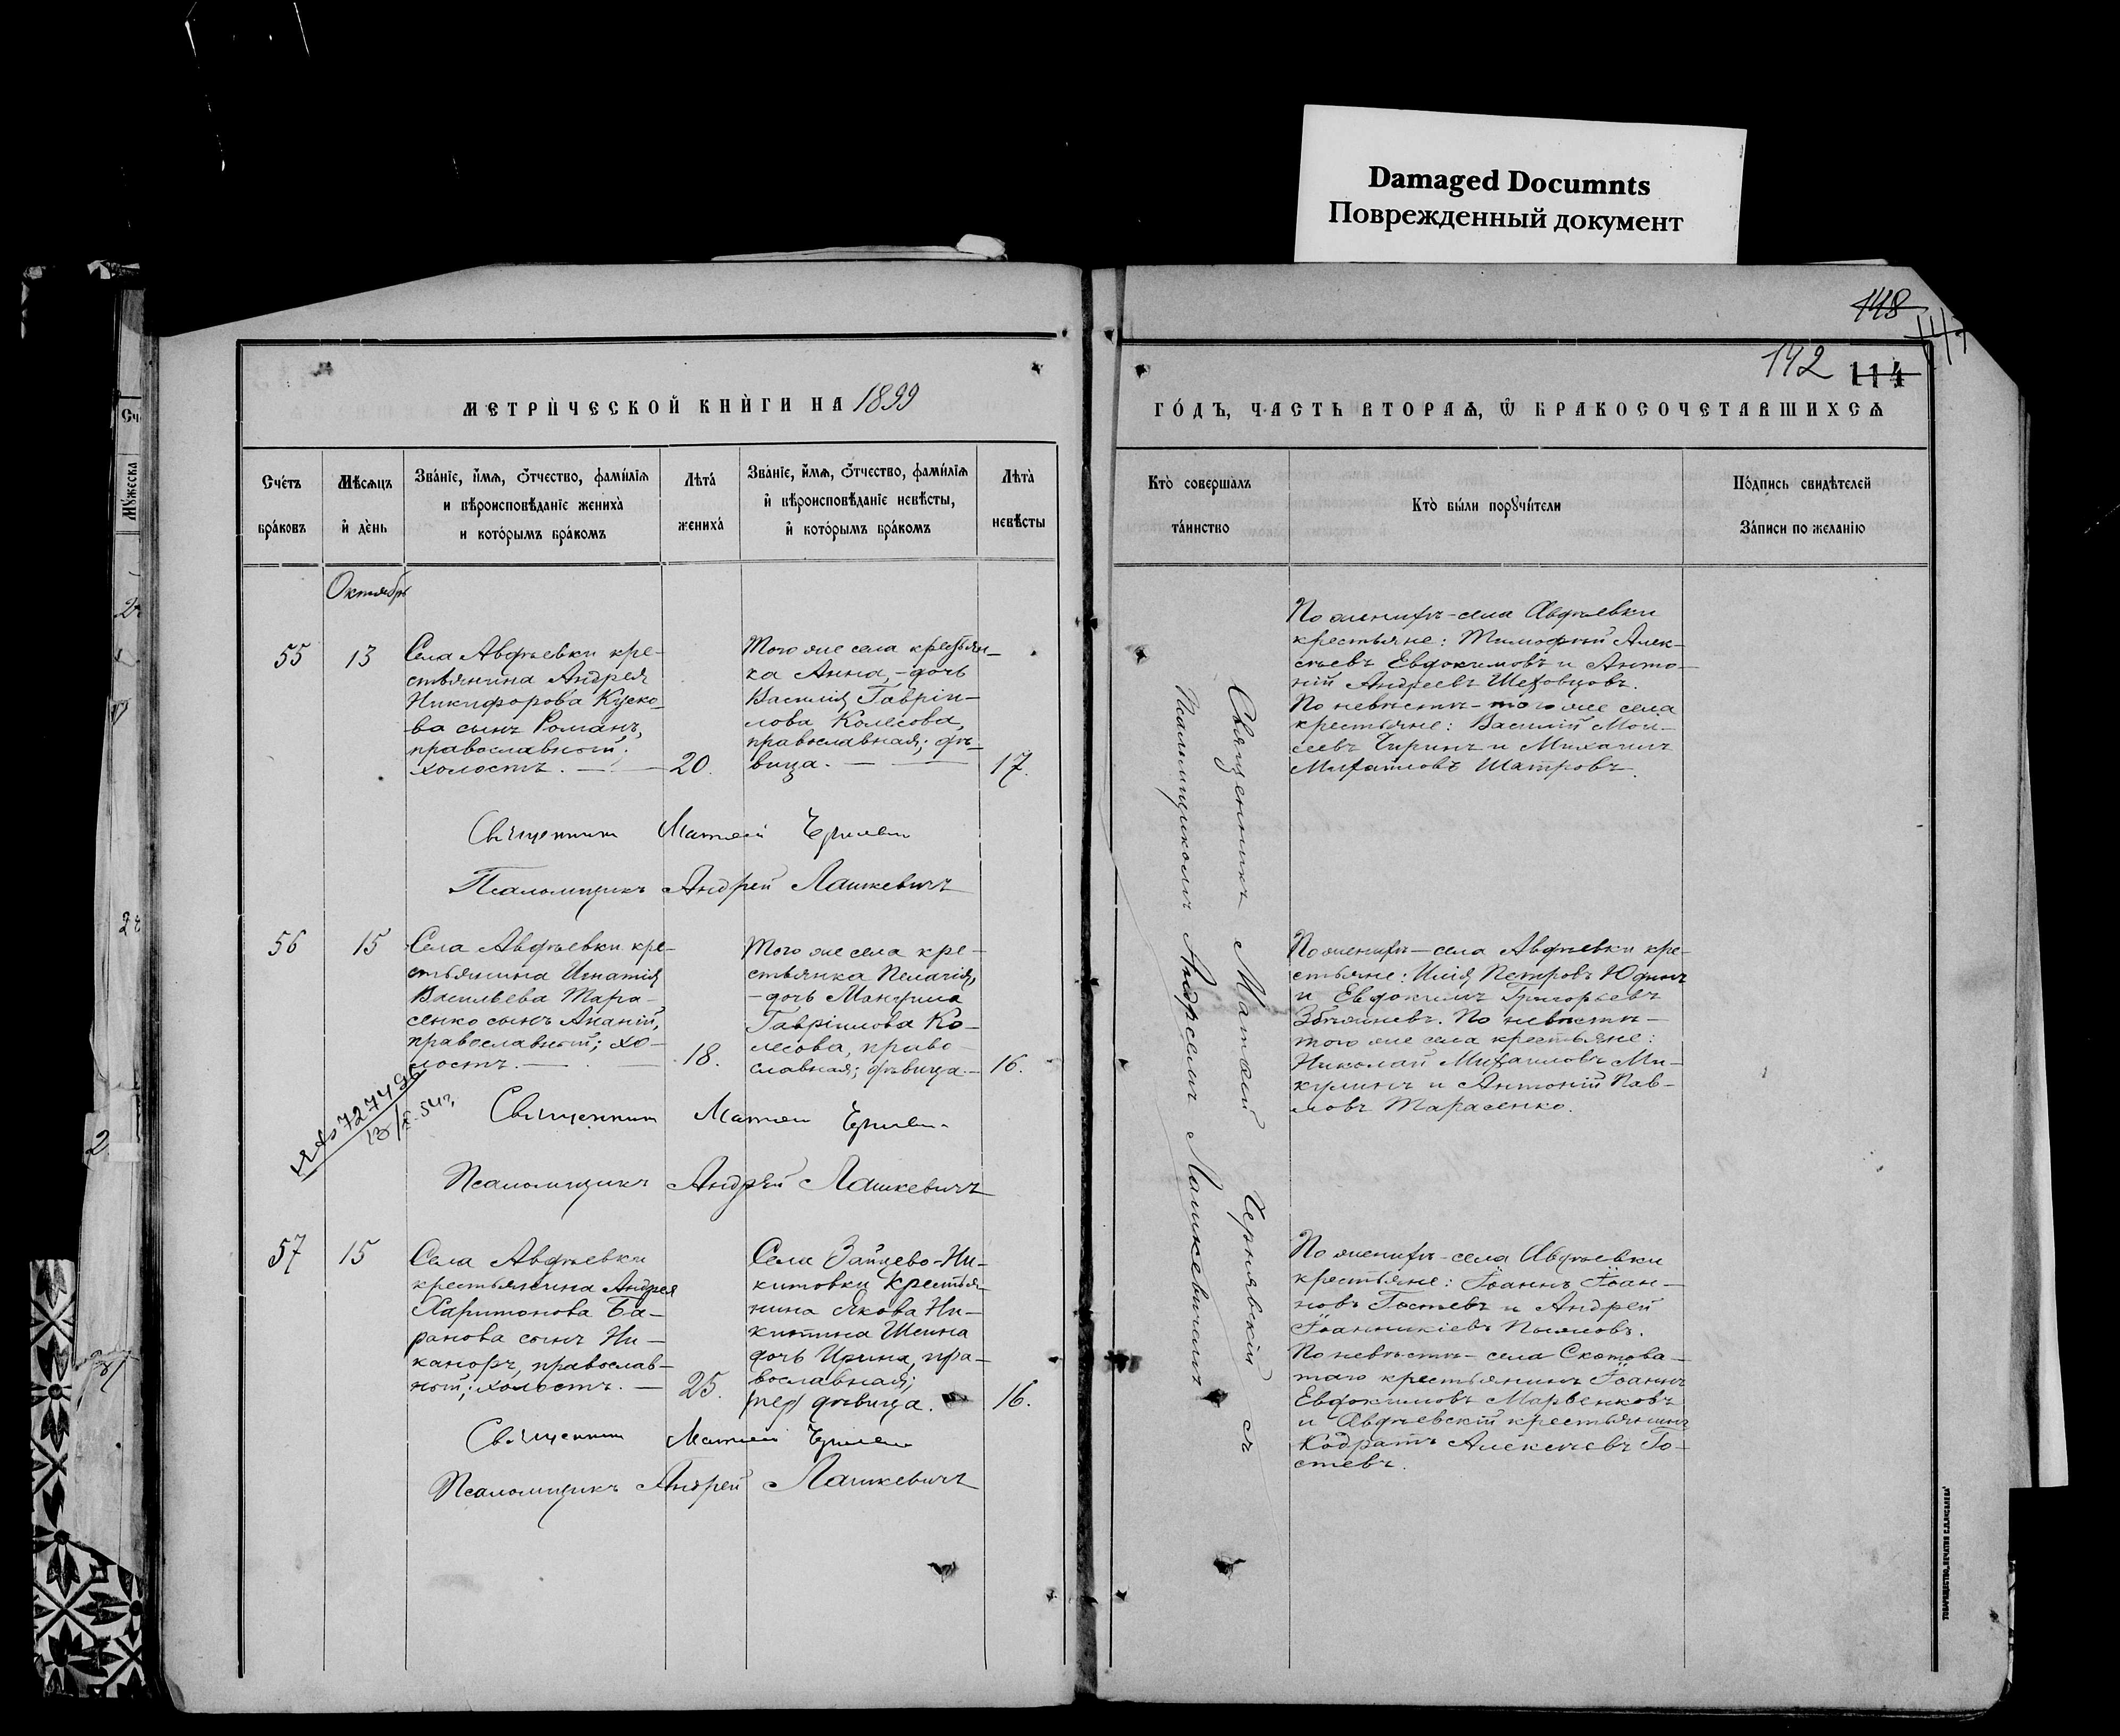 Damaged Documnts
Поврежденный документ
148
142 114
МЕТРИЧЕСКОЙ КНИГИ НА 1899
ГОДЪ, ЧАСТЬ ВТОРАѦ, Ѡ БРАКОСОЧЕТАВШИХСѦ
Счетъ браковъ
Мѣсѧцъ и день
Званіе, имѧ, отчество, фамиліѧ
и вѣроисповѣданіе жениха
и которымъ бракомъ
Лѣта жениха
Званіе, имѧ, отчество, фамиліѧ
и вѣроисповѣданіе невѣсты,
и которымъ бракомъ
Лѣта невѣсты
Кто совершалъ таинство
Кто были поручители
Подпись свидѣтелей
Записи по желанію
Октябрь
55
13
Села Авдѣевки кре-
стьянина Андрея
Никифорова Куско-
ва сынъ Романъ,
православный;
холостъ.
20.
Того же села крестьян-
ка Анна,-дочь
Василія Гавріи-
лова Колесова,
православная; дѣ-
вица.
17.
По женихѣ-села Авдѣевки
крестьяне: Тимофей Алек-
сѣевъ Евдокимовъ и Анто-
ній Андреевъ Шеховцовъ.
По невѣстѣ-того же села
крестьяне: Василій Мои-
сеевъ Чиринъ и Михаилъ
Михайловъ Шатровъ.
Священникъ Матѳей
Псаломщикъ Андрей Лашкевичъ
56
15
Села Авдѣевки кре-
стьянина Игнатія
Васильева Тара-
сенко сынъ Ананій,
православный; хо-
лостъ.
18.
Того же села кре-
стьянка Пелагія,
-дочь Мануила
Гавріилова Ко-
лесова, право-
славная; дѣвица.-
16.
По женихѣ-села Авдѣевки кре-
стьяне: Илія Петровъ Юдинъ
и Евдокимъ Григорьевъ
По невѣстѣ-
того же села крестьяне:
Николай Михаиловъ Ми-
кулинъ и Антоній Пав-
ловъ Тарасенко.
Священникъ Матѳей
Псаломщикъ Андрей Лашкевичъ
727496
57
15
Села Авдѣевки
крестьянина Андрея
Харитонова Ба-
ранова сынъ Ни-
каноръ, православ-
ный; холостъ.-
25.
Села Зайцево-Ни-
китовки крестья-
нина Якова Ни-
китина Шеина
дочь Ирина, пра-
вославная;
дѣвица.
16.
По женихѣ-села Авдѣевки
крестьяне: Іоаннъ Іоан-
новъ Гостевъ и Андрей
Іоанникіевъ
По невѣстѣ- села Скотова-
таго крестьянинъ Іоаннъ
Евдокимовъ Марченковъ
и Авдѣевскій крестьянинъ
Кодратъ Алексѣевъ Го-
стевъ.
Священникъ Матѳей
Псаломщикъ Андрей Лашкевичъ
Священникъ Матѳей Чернявскій съ
Псаломщикомъ Андреемъ Лашкевичемъ